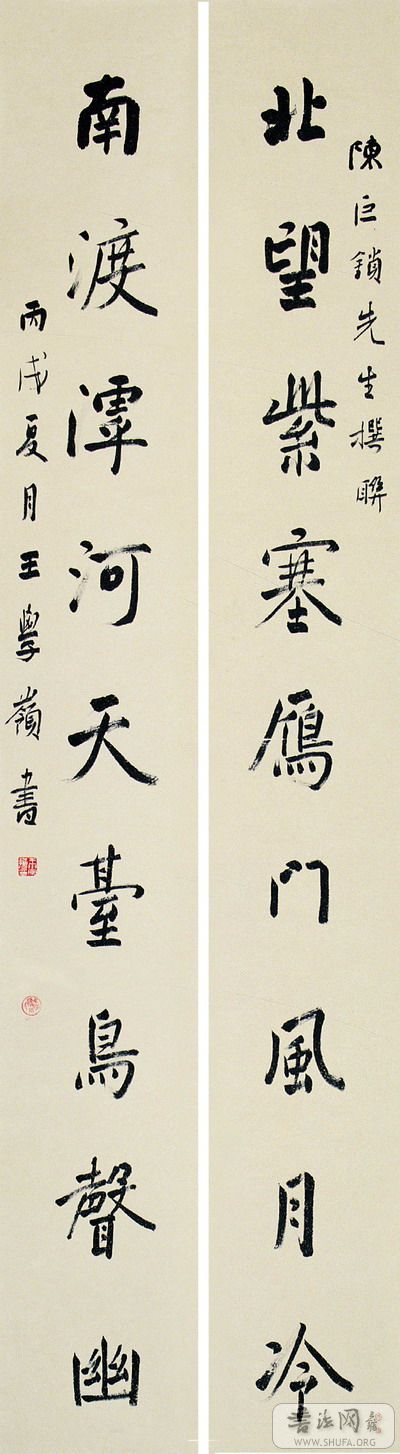 陳巨鎖先生撰聯
北望紫塞鴈門風月冷
南渡滹河天臺鳥聲幽
丙戌夏月王學嶺書
书法网
WWW.SHUFA.ORG